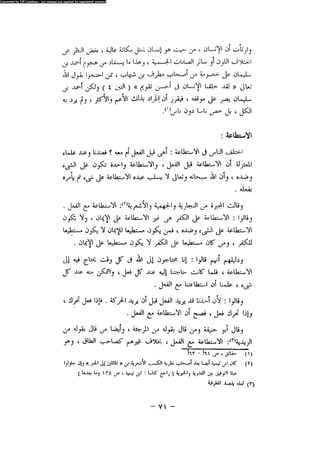 Converted by TIFF Combine - (no stamps are applied by registered version)
وأرتأت أن الإنسان ، من حيث هو إنسان يمثل مكانة عالية ، بغض النظر عن
اختلاف اللون أو سائر الصفات الجسمية ، وهذا ما يستفاد من مهجوم أحمد بن
سليمان على خصومة من أصحاب مطرف بن شهاب ، ممن احتجوا بقول الله
تعالى « لقد خلقنا الإنسان في أحسن تقويم » ( التين ٤ ) ولكن أحمد بن
سليمان يصر على موقفه ، فيقرر أن المراد بذلك الأعم والأكثر ، ولم يرد به
الكل ، بل خص ناسا دون ناس(١) .
الاستطاعة :
اختلف الناس في الاستطاعة : أهى قبل الفعل أم معه ؟ فعندنا وعند علماء
المعتزلة أن الاستطاعة قبل الفعل ، والاستطاعة واحدة تكون على الشىء
وضده ، وأن الله سبحانه وتعالى لا يسلب عبده الاستطاعة على شىء ثم يأمره
بفعله .
وقالت المجبرة من النجارية والجهمية والأشعرية(٢) : الاستطاعة مع الفعل .
وقالوا : الاستطاعة على الكفر هى غير الاستطاعة على الإيمان ، ولا يكون
الاستطاعة على الشىء وضده ، فمن يكون مستطيعا للإيمان لا يكون مستطيعا
للكفر ، ومن كان مستطيعا على الكفر لا يكون مستطيعا على الإيمان .
ودليلهم أنهم قالوا : إنا محتاجون إلى الله في كل وقت كل حين نحتاج إليه فى
الاستطاعة ، فلما كانت حاجتنا إليه عند كل فعل ، والتمكن منه عند كل
شىء ، علمنا أن استطاعتنا مع الفعل .
وقالوا : لأن أحدنا قد يريد الفعل قبل أن يريد الحركة . فإذا فعل تحرك ،
وإذا تحرك فعل ، فصح أن الاستطاعة مع الفعل .
وقال أبو حنيفة ومن قال بقوله من المرجئة ، وأيضا من قال بقوله من
الزيدية(٣) : الاستطاعة مع الفعل ، بخلاف غيرهم كصاحب الطاقة ، وهو
(١) حقائق ، ص ٩٦١ - ٩٦٢
(٣) لعله يقصد المطرفية
- ٧١ -